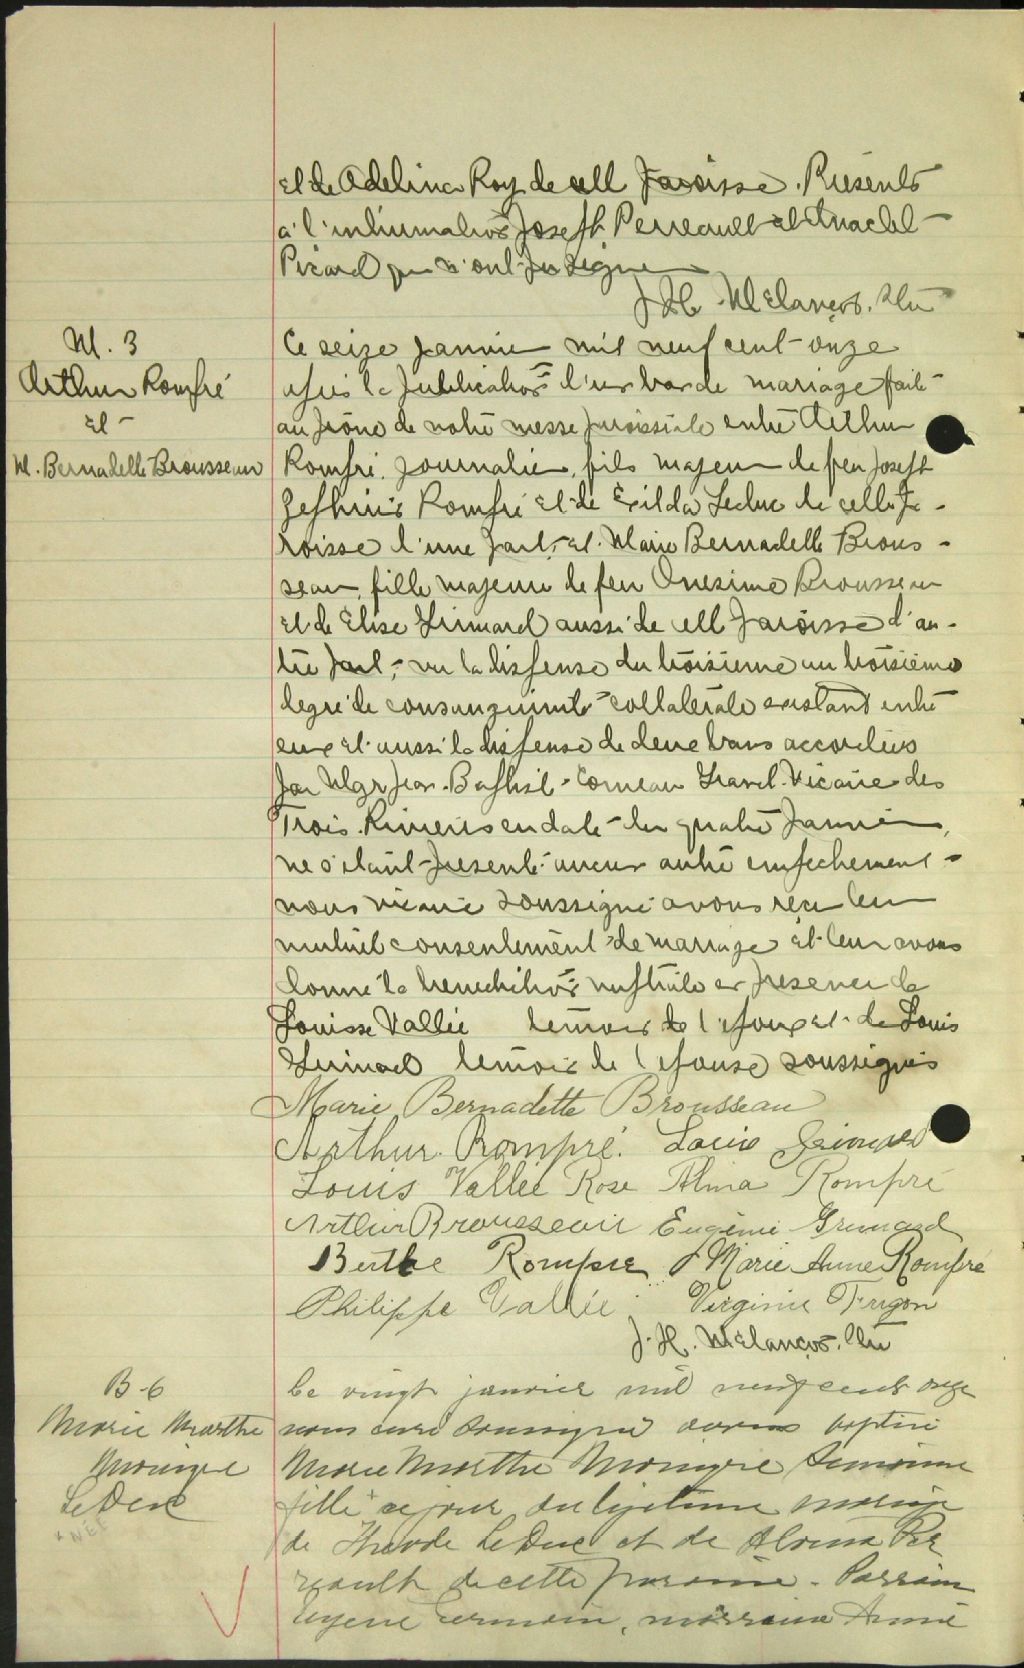 et de Adelina Roy de cette paroisse. Présents
à l'inhumation Joseph Perreault et Anaclet
Picard qui n'ont pu signer
J. H. Melançon, Ptre
M. 3
Arthur Rompré
et
M. Bernadette Brousseau
Ce seize janvier mil neuf cent onze
après la publication d'un ban de mariage faite
au prône de notre messe paroissiale entre Arthur
Rompré, journalier, fils majeur de feu Joseph
Zephirin Rompré et de Exilda Leduc de cette pa-
roisse d'une part, et Marie Bernadette Brous-
seau, fille majeure de feu Onesime Brousseau
et de Elise Grimard aussi de cette paroisse d'au-
tre part, vu la dispense du troisième au troisième
degré de consanguinité collatérale existant entre
eux et aussi la dispense de deux bans accordées
par Mgr Jean-Baptiste Comeau Grand-Vicaire des
Trois-Rivières en date du quatre janvier,
ne s'étant présenté aucun autre empêchement
nous vicaire soussigné avons reçu leur
mutuel consentement de mariage et leur avons
donné la bénédiction nuptiale en présence de
Louisse Vallée témoin de l'époux et de Louis
Grimard témoin de l'épouse soussignés
Marie Bernadette Brousseau
Arthur Rompré. Louis Grimard
Louis Vallée Rose Alma Rompré
Arthur Brousseau Eugénie Grimard
Berthe Rompré Marie Anne Rompré
Philippe Vallée Virginie Frigon
J. H. Melançon, Ptre
B-6
Marie Marthe
Monique
LeDuc
* NÉE
Ce vingt janvier mil neuf cent onze
nous curé soussigné avons baptisé
Marie Marthe Monique
fille + ce jour du légitime mariage
de LeDuc et de Alma Per
reault de cette paroisse. Parrain
Eugene Germain, marraine Annie